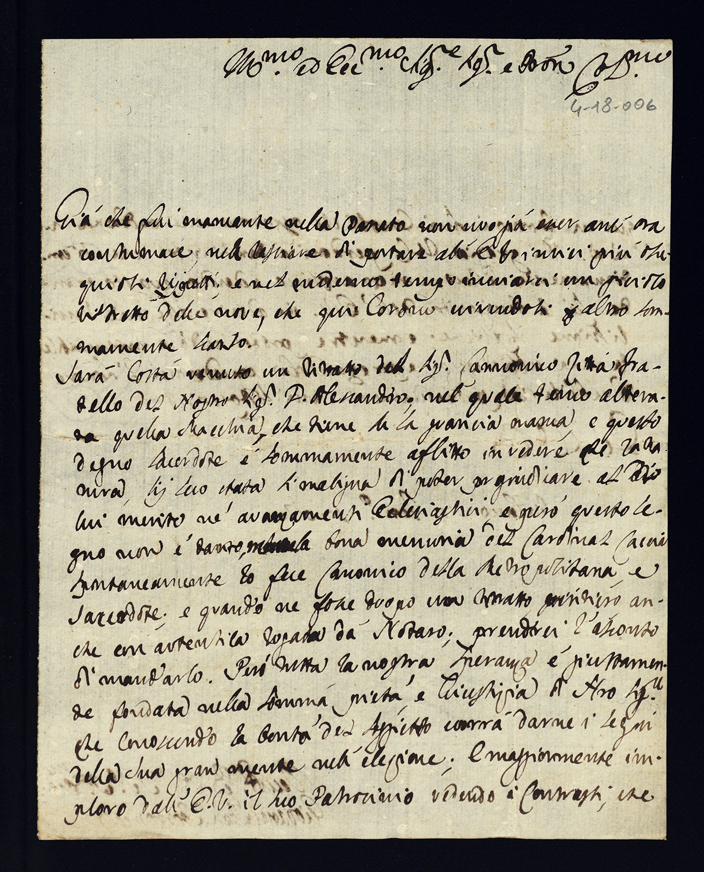 Ill.mo ed Ecc.mo Sig.e Sig.r e Pron Col.mo
4-18-006
Già che fui mancante nella Passata non vuo già esser anc' ora
contumace nell' di portare all' E. V. i miei più osse-
quiosi rispetti, e nel medemo tempo inviarci un piccolo
ristretto delle nove, che qui corono per altro som-
mamente scarse.
Sarà costà venuto un ritratto del Sig.r Cannonico Zittà fra-
tello del Nostro Sig.r D. Alesandro, nel quale altera-
ta quella Macchia, che tiene su la guancia manca, e questo
degno Sacerdote è sommamente aflitto in vedere che la na-
tura, sij seco stata sì maligna di poter pregiudicare al di
lui merito ne' avanzamenti Eclesiastici e però questo se-
gno non è tanto, mentre la bona memoria del Cardinal
spontaneamente lo fece Canonico della Metropolitana, e
Sacerdote; e quando ne fosse d'uopo un ritratto an-
che con autentica rogata da Notaro, prenderei l'asonto
di mandarlo. Però tutta la nostra speranza è giustamen-
te fondata nella somma pietà e Giustizia di N'ro Sig.re
che conoscendo la bontà del sogietto vorrà darne i segni
della sua gran mente nell' elezione; E maggiormente im-
ploro dall' E. V. il suo Patrocinio vedendo i Contrasti, che